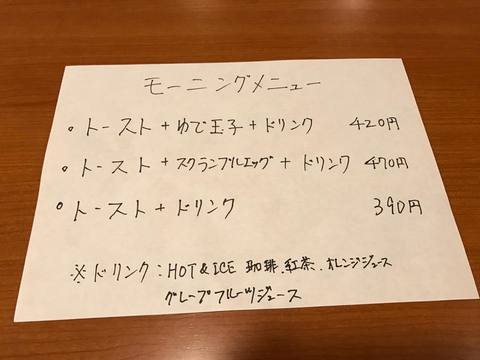 モーニングメニュー
• トースト + ゆで玉子 + ドリンク 420円
• トースト + スクランブルエッグ + ドリンク 470円
• トースト + ドリンク 390円
※ドリンク:HOT & ICE 珈琲.紅茶.オレンジジュース
グレープフルーツジュース